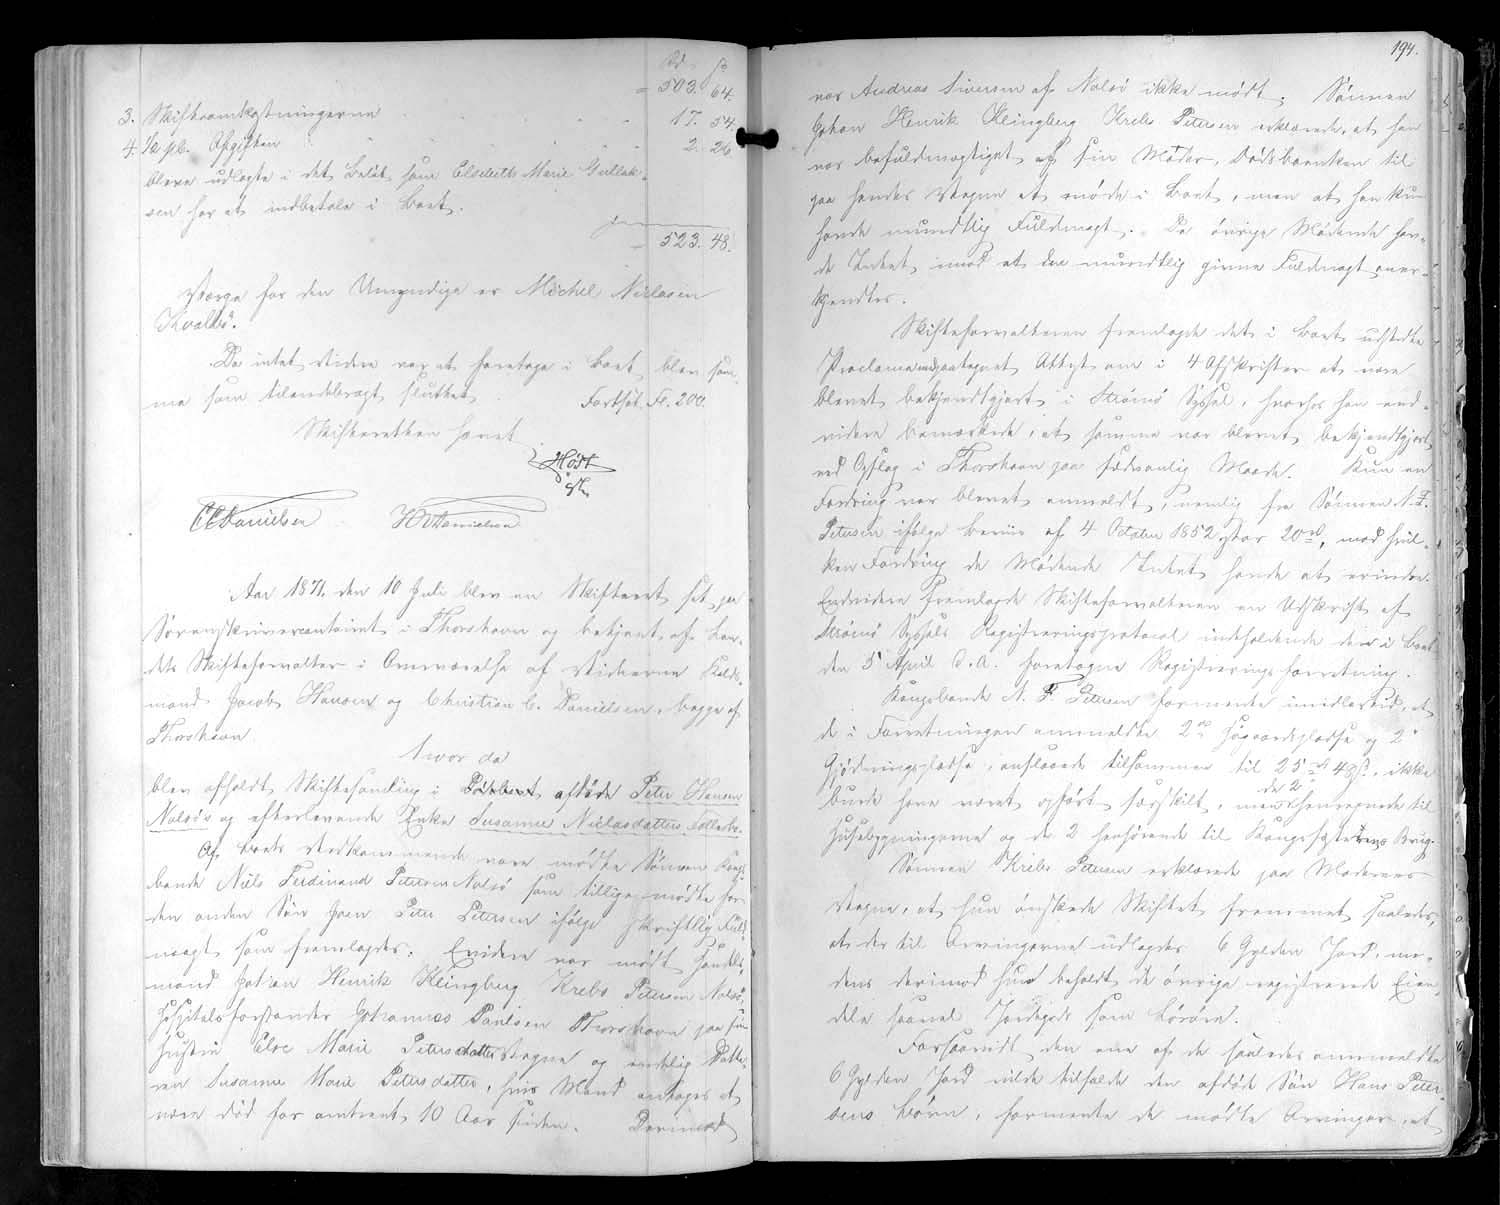 Rd. ß
= 503. 64.
3. Skifteomkostningerne " 17. 54.
4. ½ pCt. Afgiften " 2. 26
bleve udlagte i det Beløb som Elsebeth Marie Gullak-
sen har at indbetale i Boet.
= 523. 48.
Værge for den Umyndige er Michel Niclasen
Kvalbø.
Da intet videre var at foretage i Boet blev sam-
me som tilendebragt sluttet. Fortsat Fl. 200.
Skifteretten hævet
Høst
CCDanielsen HDanielsen
Aar 1871, den 10 Juli blev en Skifteret sat paa
Sorenskrivercontoiret i Thorshavn og betjent af Lan-
dets Skifteforvalter i Overværelse af Vidnerne Kolds-
mand Jacob Hansen og Christian C. Danielsen, begge af
Thorshavn.
Hvor da
blev afholdt Skiftesamling i Dødsboet afdøde Peter Hansen
Nolsø's og efterlevende Enke Susanne Niclasdatters Fælleds-
Af Boets Vedkommende vare mødte Sønnen Kongs-
bonde Niels Ferdinand Petersen Nolsø som tillige mødte for
den anden Søn Joen Peter Petersen ifølge skriftlig Fuld-
magt som fremlagdes. Endvidere var mødt Handels-
mand Johan Henrik Klingberg Krebs Petersen Nolsø,
Hospitalsforstander Johannes Poulsen Thorshavn paa sin
Hustru Else Marie Petersdatters Vegne og endelig Datte-
ren Susanne Marie Petersdatter, hvis Mand antages at
være død for omtrent 10 Aar siden. Derimod
194.
var Andreas Sivertsen af Nolsø ikke mødt. Sønnen
Johan Henrik Klingberg Krebs Petersen erklærede, at han
var befuldmægtiget af sin Moder, Dødsboenken til
paa hendes Vegne at møde i Boet, men at han kun
havde mundtlig Fuldmagt. De øvrige Mødende hav-
de Intet imod at den mundtlig givne Fuldmagt aner-
kjendtes.
Skifteforvalteren fremlagde det i Boet udstedte
Proclama med paategnet Attest om i 4 Afskrifter at være
blevet bekjendtgjort i Strømø Syssel, hvorhos han end-
videre bemærkede, at samme var blevet bekjendtgjort
ved Opslag i Thorshavn paa sædvanlig Maade. Kun en
Fordring var blevet anmeldt, nemlig fra Sønnen N. F.
Petersen ifølge Beviis af 4 October 1852 stor 20 rd, mod hvil-
ken Fordring de Mødende Intet havde at erindre.
Endvidere fremlagde Skifteforvalteren en Udskrift af
Strømø Syssels Registreringsprotocol indeholdende den i Boet
den 5 April d. A. foretagne Registreringsforretning.
Kongsbonde N. F. Petersen formente imidlertid, at
de i Forretningen anmeldte 2de Høgaardspladse og 2
Gjødningspladse, anslaaede tilsammen til 25 rd 48 ß, ikke
burde have været opført særskilt, men de 2 henregnede til
Husebygningerne og de 2 henhørende til Kongsfæsterens Brug.
Sønnen Krebs Petersen erklærede paa Moderens
Vegne, at hun ønskede Skiftet fremmet saaledes,
at der til Arvingerne udlagdes 6 Gylden Jord, me-
dens derimod hun beholdt de øvrige registrerede Eien-
dele saavel Jordegods som Løsøre.
Forsaavidt den ene af de saaledes anmeldte
6 Gylden Jord vilde tilfalde den afdøde Søn Hans Peter-
sens Børn, formente de mødte Arvinger, at